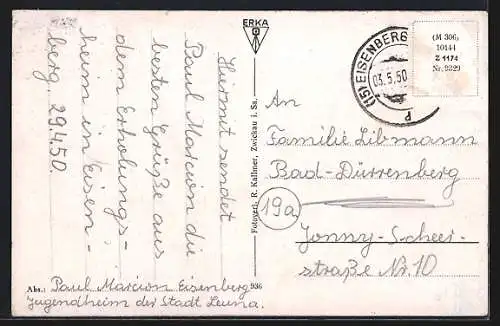 ERKA
(M 306)
10144
Z 1174
Nr. 9329
(15) EISENBERG
03.5.50
P
Hiermit sendet
Paul Marcion die
besten Grüße aus
dem Erholungs-
heim in Eisen-
berg. 29.4.50.
An
Familie Libmann
Bad-Dürrenberg
19a
Jonny-Scheer-
straße Nr. 10
Fotovert. R. Kallmer, Zwickau i. Sa.
936
Abs.: Paul Marcion Eisenberg
Jugendheim der Stadt Leuna.